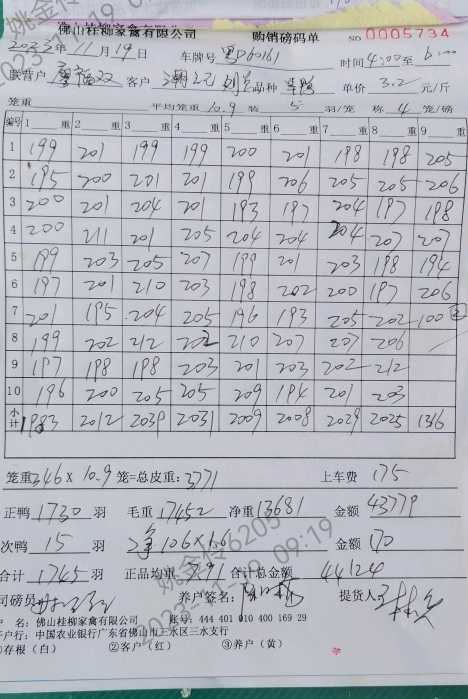 佛山桂柳家禽有限公司 购销磅码单 NO 0005734
2022年11月19日 车牌号 粤D60161 时间4:00至6:00
联营户 客户 品种 单价 3.2 元/斤
笼重 平均笼重 10.9 装 5 羽/笼 称 4 笼/磅
编号 1 重 2 重 3 重 4 重 5 重 6 重 7 重 8 重 9 重
1 199 201 199 199 200 201 198 198 205
2 195 200 201 201 199 206 205 205 206
3 200 201 204 201 193 197 204 197 198
4 200 211 201 205 204 204 204 207 207
5 199 203 205 207 199 201 203 198 194
6 197 201 210 203 198 202 200 197 206
7 201 195 204 205 196 193 205 202 100 ②
8 199 202 212 202 210 207 207 206
9 197 198 198 203 201 203 202 212
10 196 200 205 205 209 194 201 203
小计 1983 2012 2039 2031 2009 2008 2029 2025 1316
笼重346×10.9笼=总皮重:3771 上车费 175
正鸭 1730 羽 毛重 17452 净重 13681 金额 43779
次鸭 15 羽 净106×1.6 金额 170
合计 1745 羽 正品均重 7.91 合计总金额 44124
司磅员 养户签名: 提货人
户 名: 佛山桂柳家禽有限公司 账号: 444 401 010 400 169 29
开户行: 中国农业银行广东省佛山市三水区三水支行
①存根(白) ②客户(红) ③养户(黄)
姚金传6205
2022-11-19 09:19